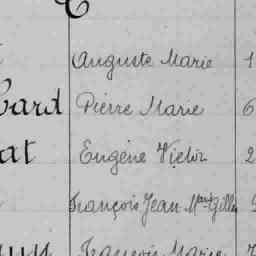 C
Auguste Marie 1
bard Pierre Marie 6
at Eugène Victor 2
François Jean Marie Gilles
François Marie